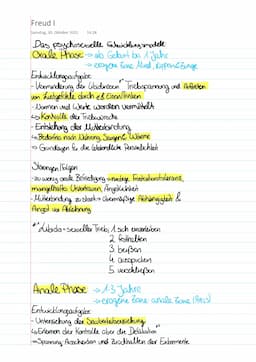 Freud I
Samstag, 30. Oktober 2021 14:28
Das psychosexuelle Entwicklungsmodell
Orale Phase → ab Geburt bis 1 Jahr
→ erogene Zone Mund, Lippen & Zunge
Entwicklungsaufgabe
- Verminderung der Libidinösen*¹ Triebspannung und
von Lustgefühle durch z.B. Essen/Trinken
- Normen und Werte werden vermittelt
↳ Kontrolle der Triebwünsche
- Entstehung der Mutterbindung
↳ Bedürfnis nach Nahrung, Saugen & Wärme
↳ Grundlagen für die Persönlichkeit
Störungen/Folgen
- zu wenig orale Befriedigung → niedrige Frustrationstoleranz,
mangelhaftes Urvertrauen, Ängstlichkeit
- Mutterbindung zu stark → übermäßige Abhängigkeit &
Angst vor Ablehnung
*¹ Libido = sexueller Trieb, 1. sich einverleiben
2. festhalten
3. beißen
4. ausspucken
5. verschließen
Anale Phase → 1-3 Jahre
→ erogene Zone: anale Zone (Anus)
Entwicklungsaufgabe
- Unterstützung der Sauberkeitserziehung
↳ Erlernen der Kontrolle über die Defäkation*²
↳ Spannung Ausscheiden und Zurückhalten der Exkremente